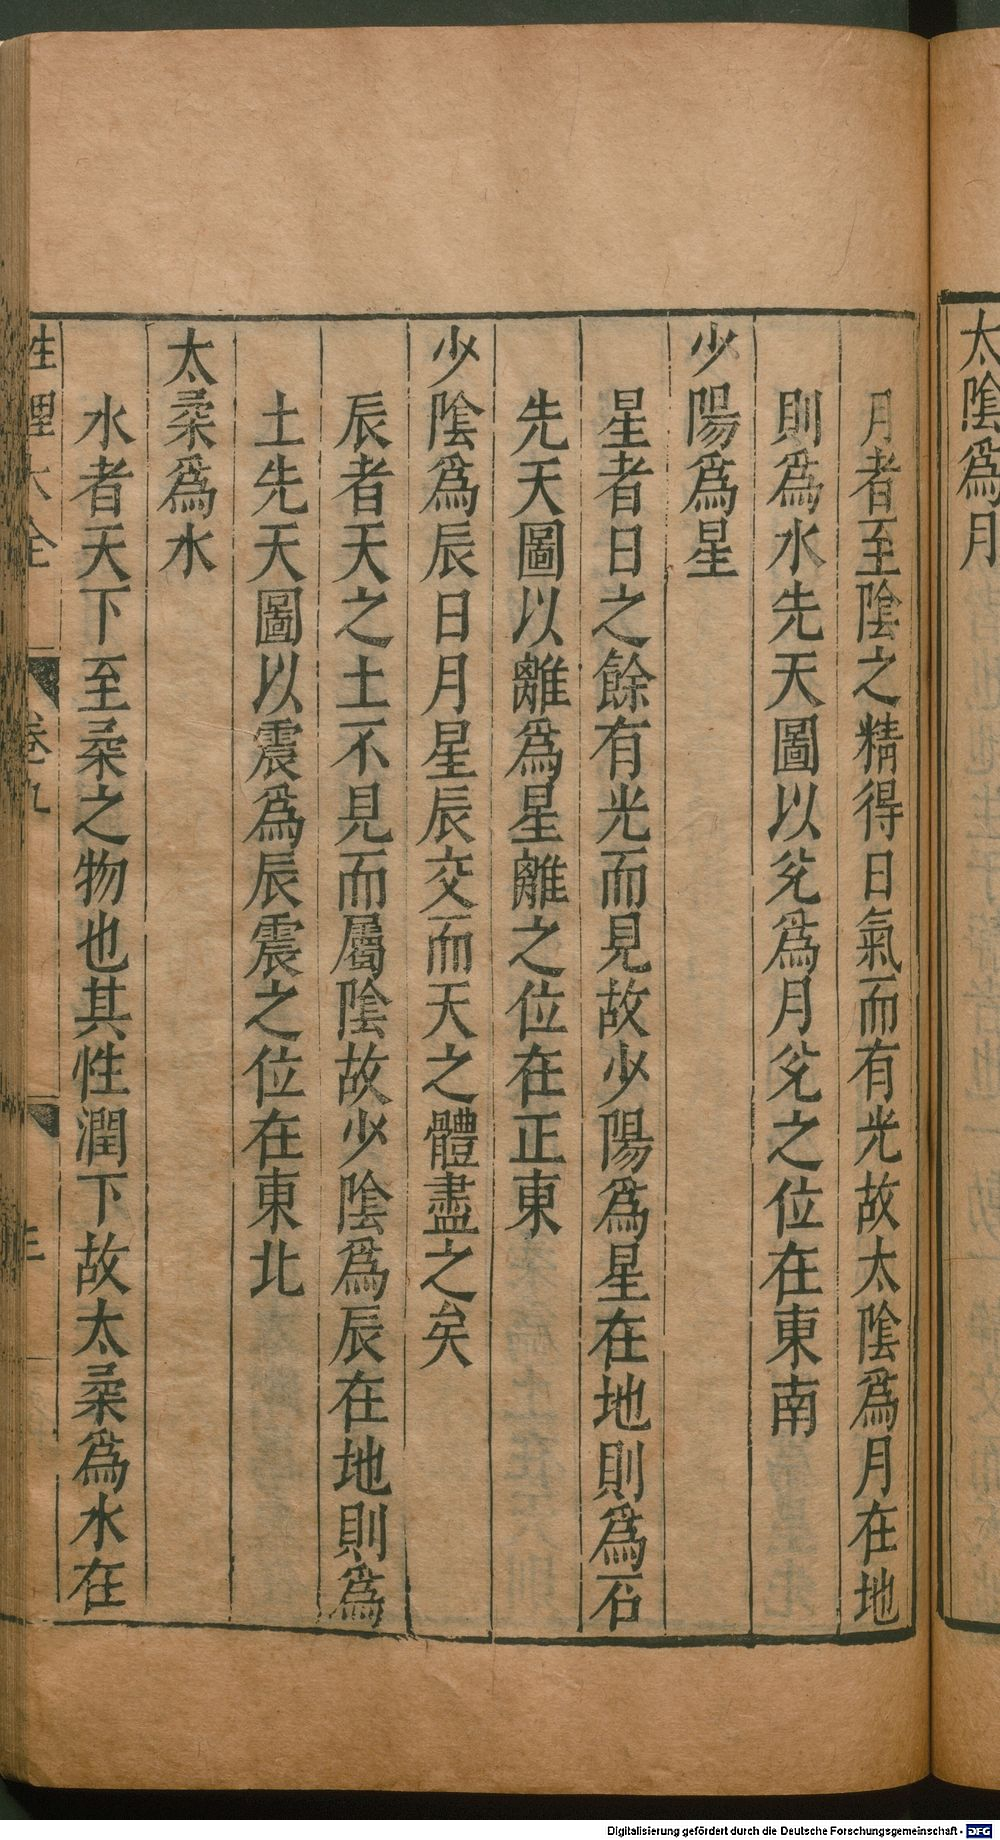 太陰爲月
月者至陰之精得日氣而有光故太陰爲月在地
則爲水先天圖以兊爲月兊之位在東南
少陽爲星
星者日之餘有光而見故少陽爲星在地則爲石
先天圖以離爲星離之位在正東
少陰爲辰日月星辰交而天之體盡之矣
辰者天之土不見而屬陰故少陰爲辰在地則爲
土先天圖以震爲辰震之位在東北
太柔爲水
水者天下至柔之物也其性潤下故太柔爲水在
性理大全 卷九
Digitalisierung gefördert durch die Deutsche Forschungsgemeinschaft - DFG